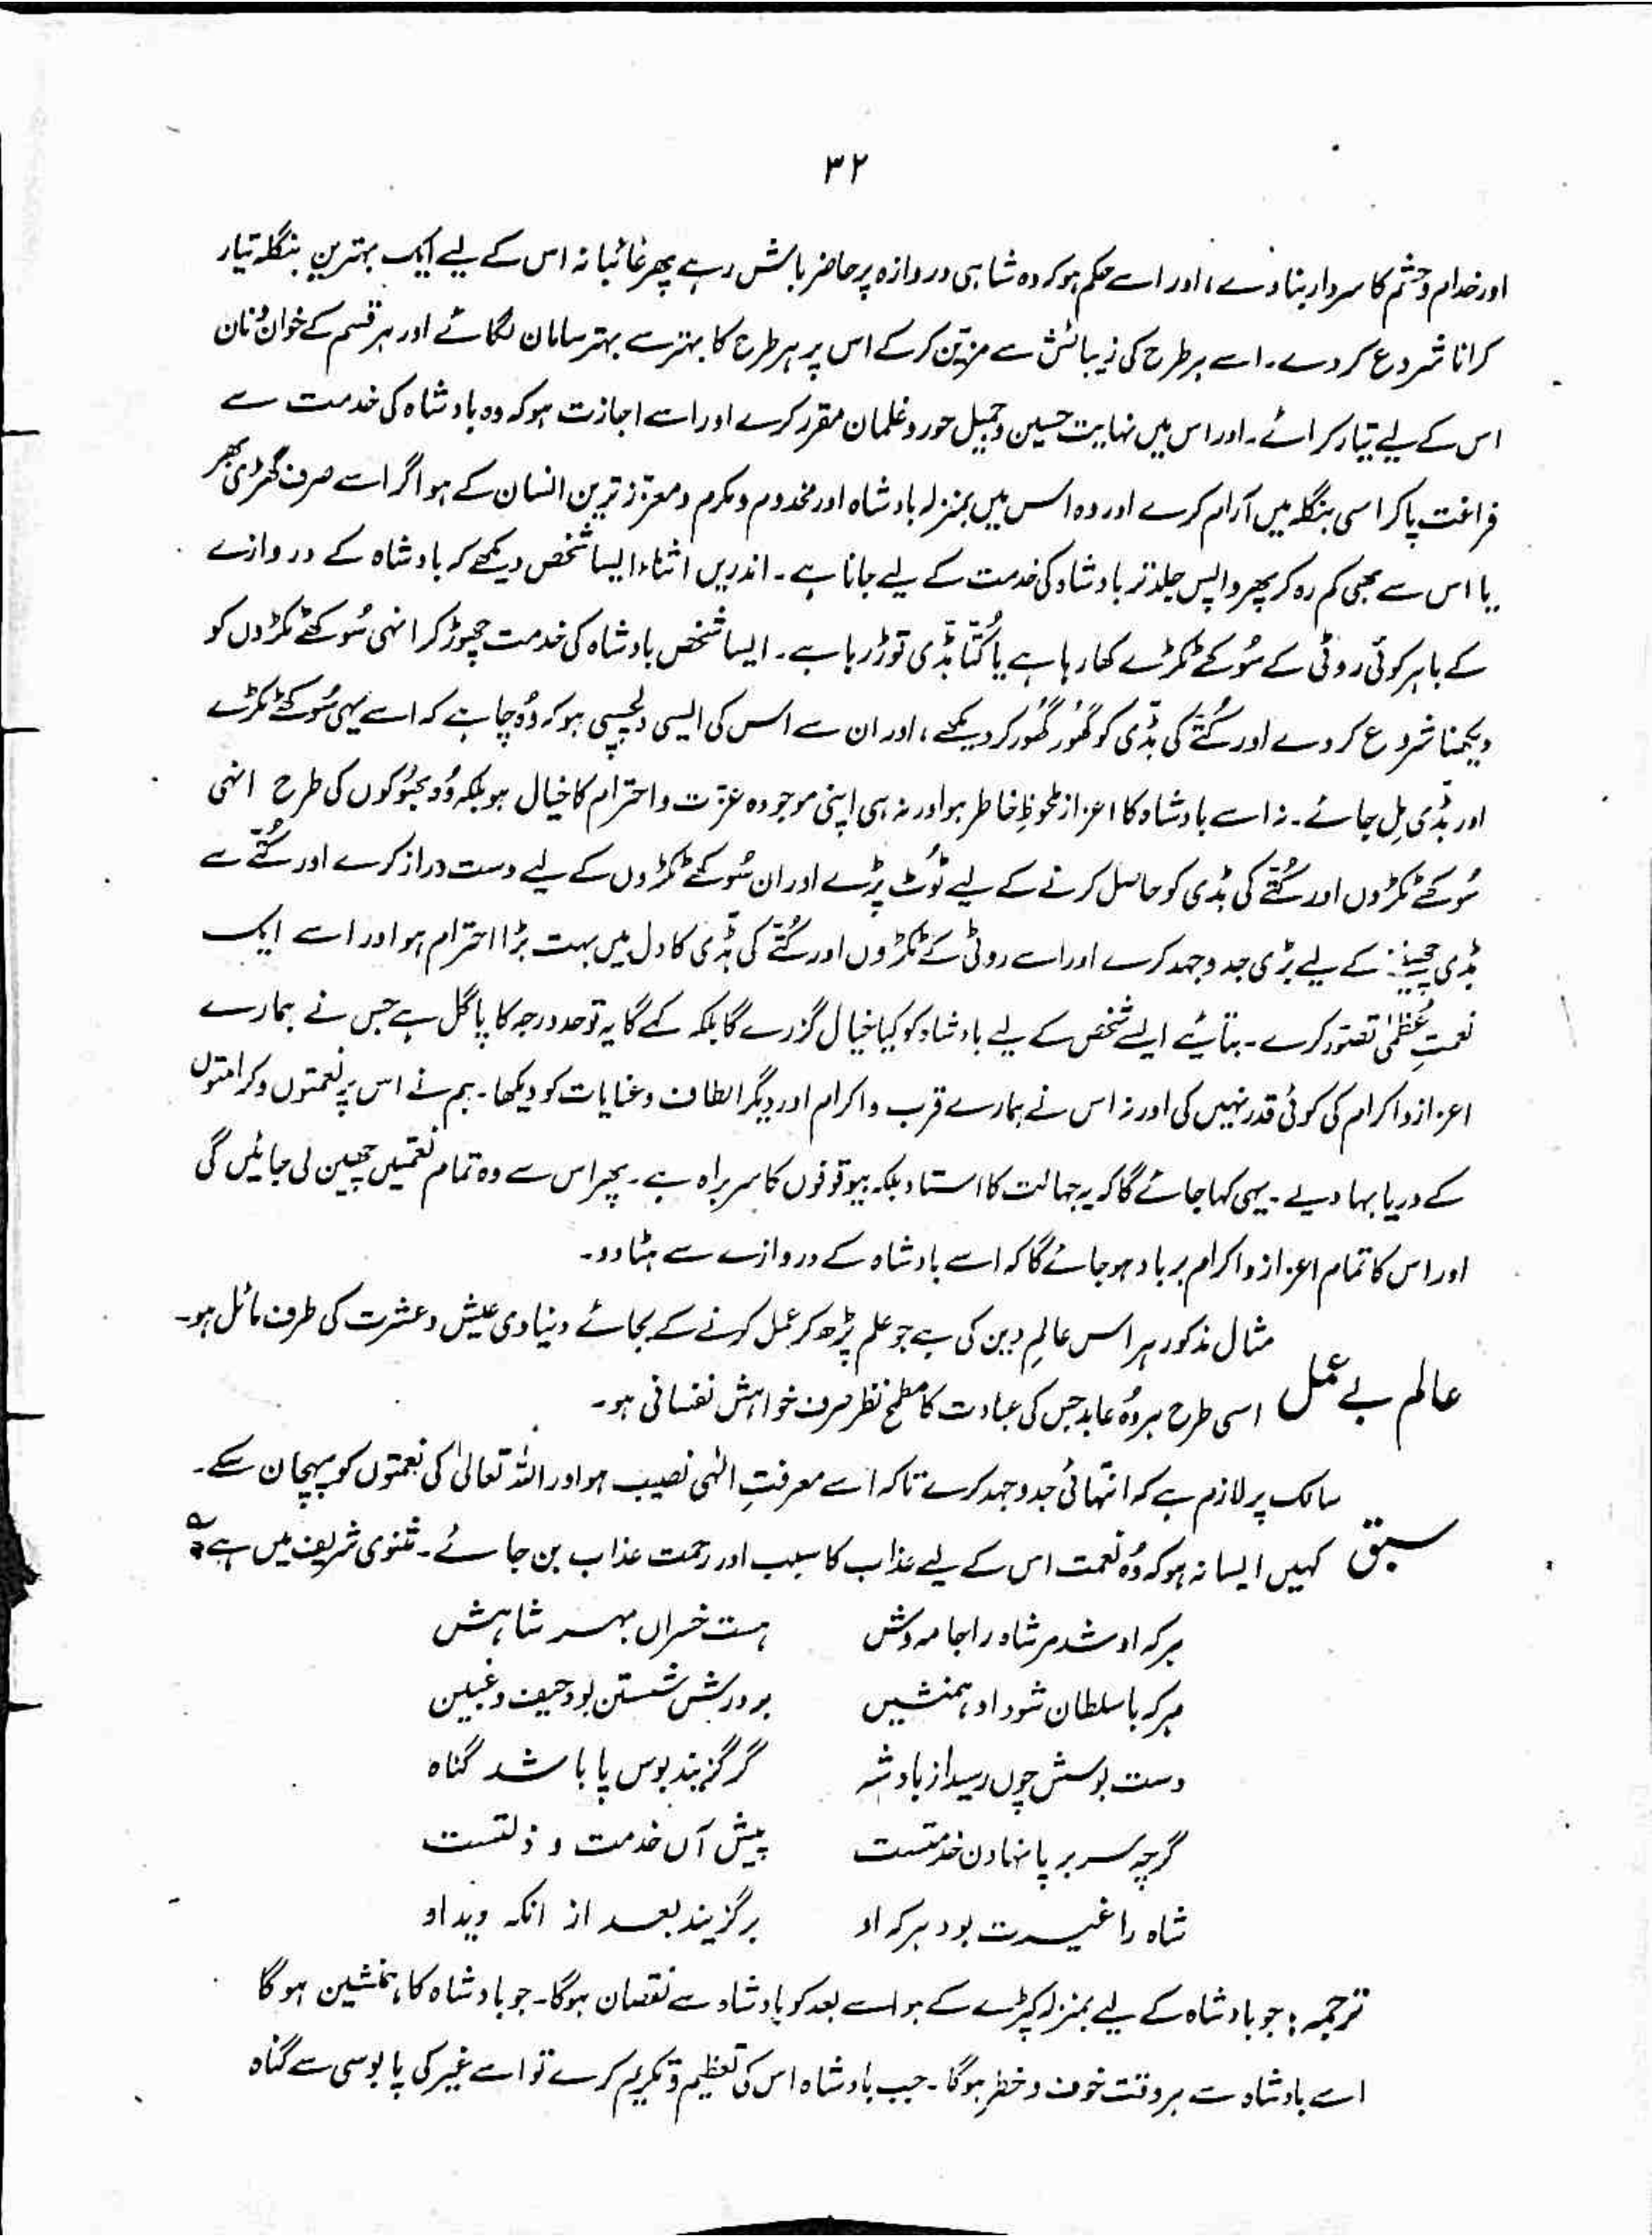 ۳۲
اور خدام و حشم کا سردار بنا دے، اور اسے حکم ہو کہ وہ شاہی دروازہ پر حاضر باش رہے پھر غائبانہ اس کے لیے ایک بہترین بنگلہ تیار
کرانا شروع کر دے۔ اسے ہر طرح کی زیبائش سے مزیّن کر کے اس پر ہر طرح کا بہتر سے بہتر سامان لگائے اور ہر قسم کے خوان و نان
اس کے لیے تیار کرائے۔ اور اس میں نہایت حسین و جمیل حور و غلمان مقرر کرے اور اسے اجازت ہو کہ وہ بادشاہ کی خدمت سے
فراغت پا کر اسی بنگلہ میں آرام کرے اور وہ اس میں بمنزلہ بادشاہ اور مخدوم و مکرم و معزز ترین انسان کے ہو اگر اسے صرف گھڑی بھر
یا اس سے بھی کم رہ کر پھر واپس جلد تر بادشاہ کی خدمت کے لیے جانا ہے۔ اندریں اثناء ایسا شخص دیکھے کہ بادشاہ کے دروازے
کے باہر کوئی روٹی کے سُوکھے ٹکڑے کھا رہا ہے یا کُتّا ہڈّی توڑ رہا ہے۔ ایسا شخص بادشاہ کی خدمت چھوڑ کر انہی سُوکھے ٹکڑوں کو
دیکھنا شروع کر دے اور کُتّے کی ہڈّی کو گھُور گھُور کر دیکھے، اور ان سے اس کی ایسی دلچسپی ہو کہ وُہ چاہے کہ اسے یہی سُوکھے ٹکڑے
اور ہڈّی مِل جائے۔ نہ اسے بادشاہ کا اعزاز ملحوظِ خاطر ہو اور نہ ہی اپنی موجودہ عزّت و احترام کا خیال ہو بلکہ وُہ بھُوکوں کی طرح انہی
سُوکھے ٹکڑوں اور کُتّے کی ہڈی کو حاصل کرنے کے لیے ٹوٹ پڑے اور ان سُوکھے ٹکڑوں کے لیے دست دراز کرے اور کُتّے سے
ہڈی چھیننے کے لیے بڑی جدوجہد کرے اور اسے روٹی کے ٹکڑوں اور کُتّے کی ہڈّی کا دل میں بہت بڑا احترام ہو اور اسے ایک
نعمتِ عُظمیٰ تصوّر کرے۔ بتائیے ایسے شخص کے لیے بادشاہ کو کیا خیال گزرے گا بلکہ کہے گا یہ تو حد درجہ کا پاگل ہے جس نے ہمارے
اعزاز و اکرام کی کوئی قدر نہیں کی اور نہ اس نے ہمارے قرب و اکرام اور دیگر الطاف و عنایات کو دیکھا۔ ہم نے اس پر نعمتوں و کرامتوں
کے دریا بہا دیے۔ یہی کہا جائے گا کہ یہ جہالت کا استاد بلکہ بیوقوفوں کا سربراہ ہے۔ پھر اس سے وہ تمام نعمتیں چھین لی جائیں گی
اور اس کا تمام اعزاز و اکرام برباد ہو جائے گا کہ اسے بادشاہ کے دروازے سے ہٹا دو۔
عالم بے عمل مثال مذکور ہر اس عالمِ دین کی ہے جو علم پڑھ کر عمل کرنے کے بجائے دنیاوی عیش و عشرت کی طرف مائل ہو۔
اسی طرح ہر وُہ عابد جس کی عبادت کا مطمحِ نظر صرف خواہش نفسانی ہو۔
سبق سالک پر لازم ہے کہ انتہائی جدوجہد کرے تاکہ اسے معرفتِ الٰہی نصیب ہو اور اللہ تعالیٰ کی نعمتوں کو پہچان سکے۔
کہیں ایسا نہ ہو کہ وُہ نعمت اس کے لیے عذاب کا سبب اور رحمت عذاب بن جائے۔ مثنوی شریف میں ہے
ہر کہ او شد مر شاہ را جامہ وش ہست خسراں بہر شاہش
ہر کہ با سلطان شود او ہمنشیں بر درش شستن بود حیف و غبین
دست بوسش چوں رسید از بادشہ گر گزیند بوس پا باشد گناہ
گرچہ سر بر پا نہادن خدمتست پیش آں خدمت و ذلتست
شاہ را غیرت بود ہر کہ او برگزیند بعد از انکہ دید او
ترجمہ: جو بادشاہ کے لیے بمنزلہ کپڑے کے ہو اسے بعد کو بادشاہ سے نقصان ہوگا۔ جو بادشاہ کا ہمنشین ہوگا
اسے بادشاہ سے ہر وقت خوف و خطر ہوگا۔ جب بادشاہ اس کی تعظیم و تکریم کرے تو اسے غیر کی پابوسی سے گناہ